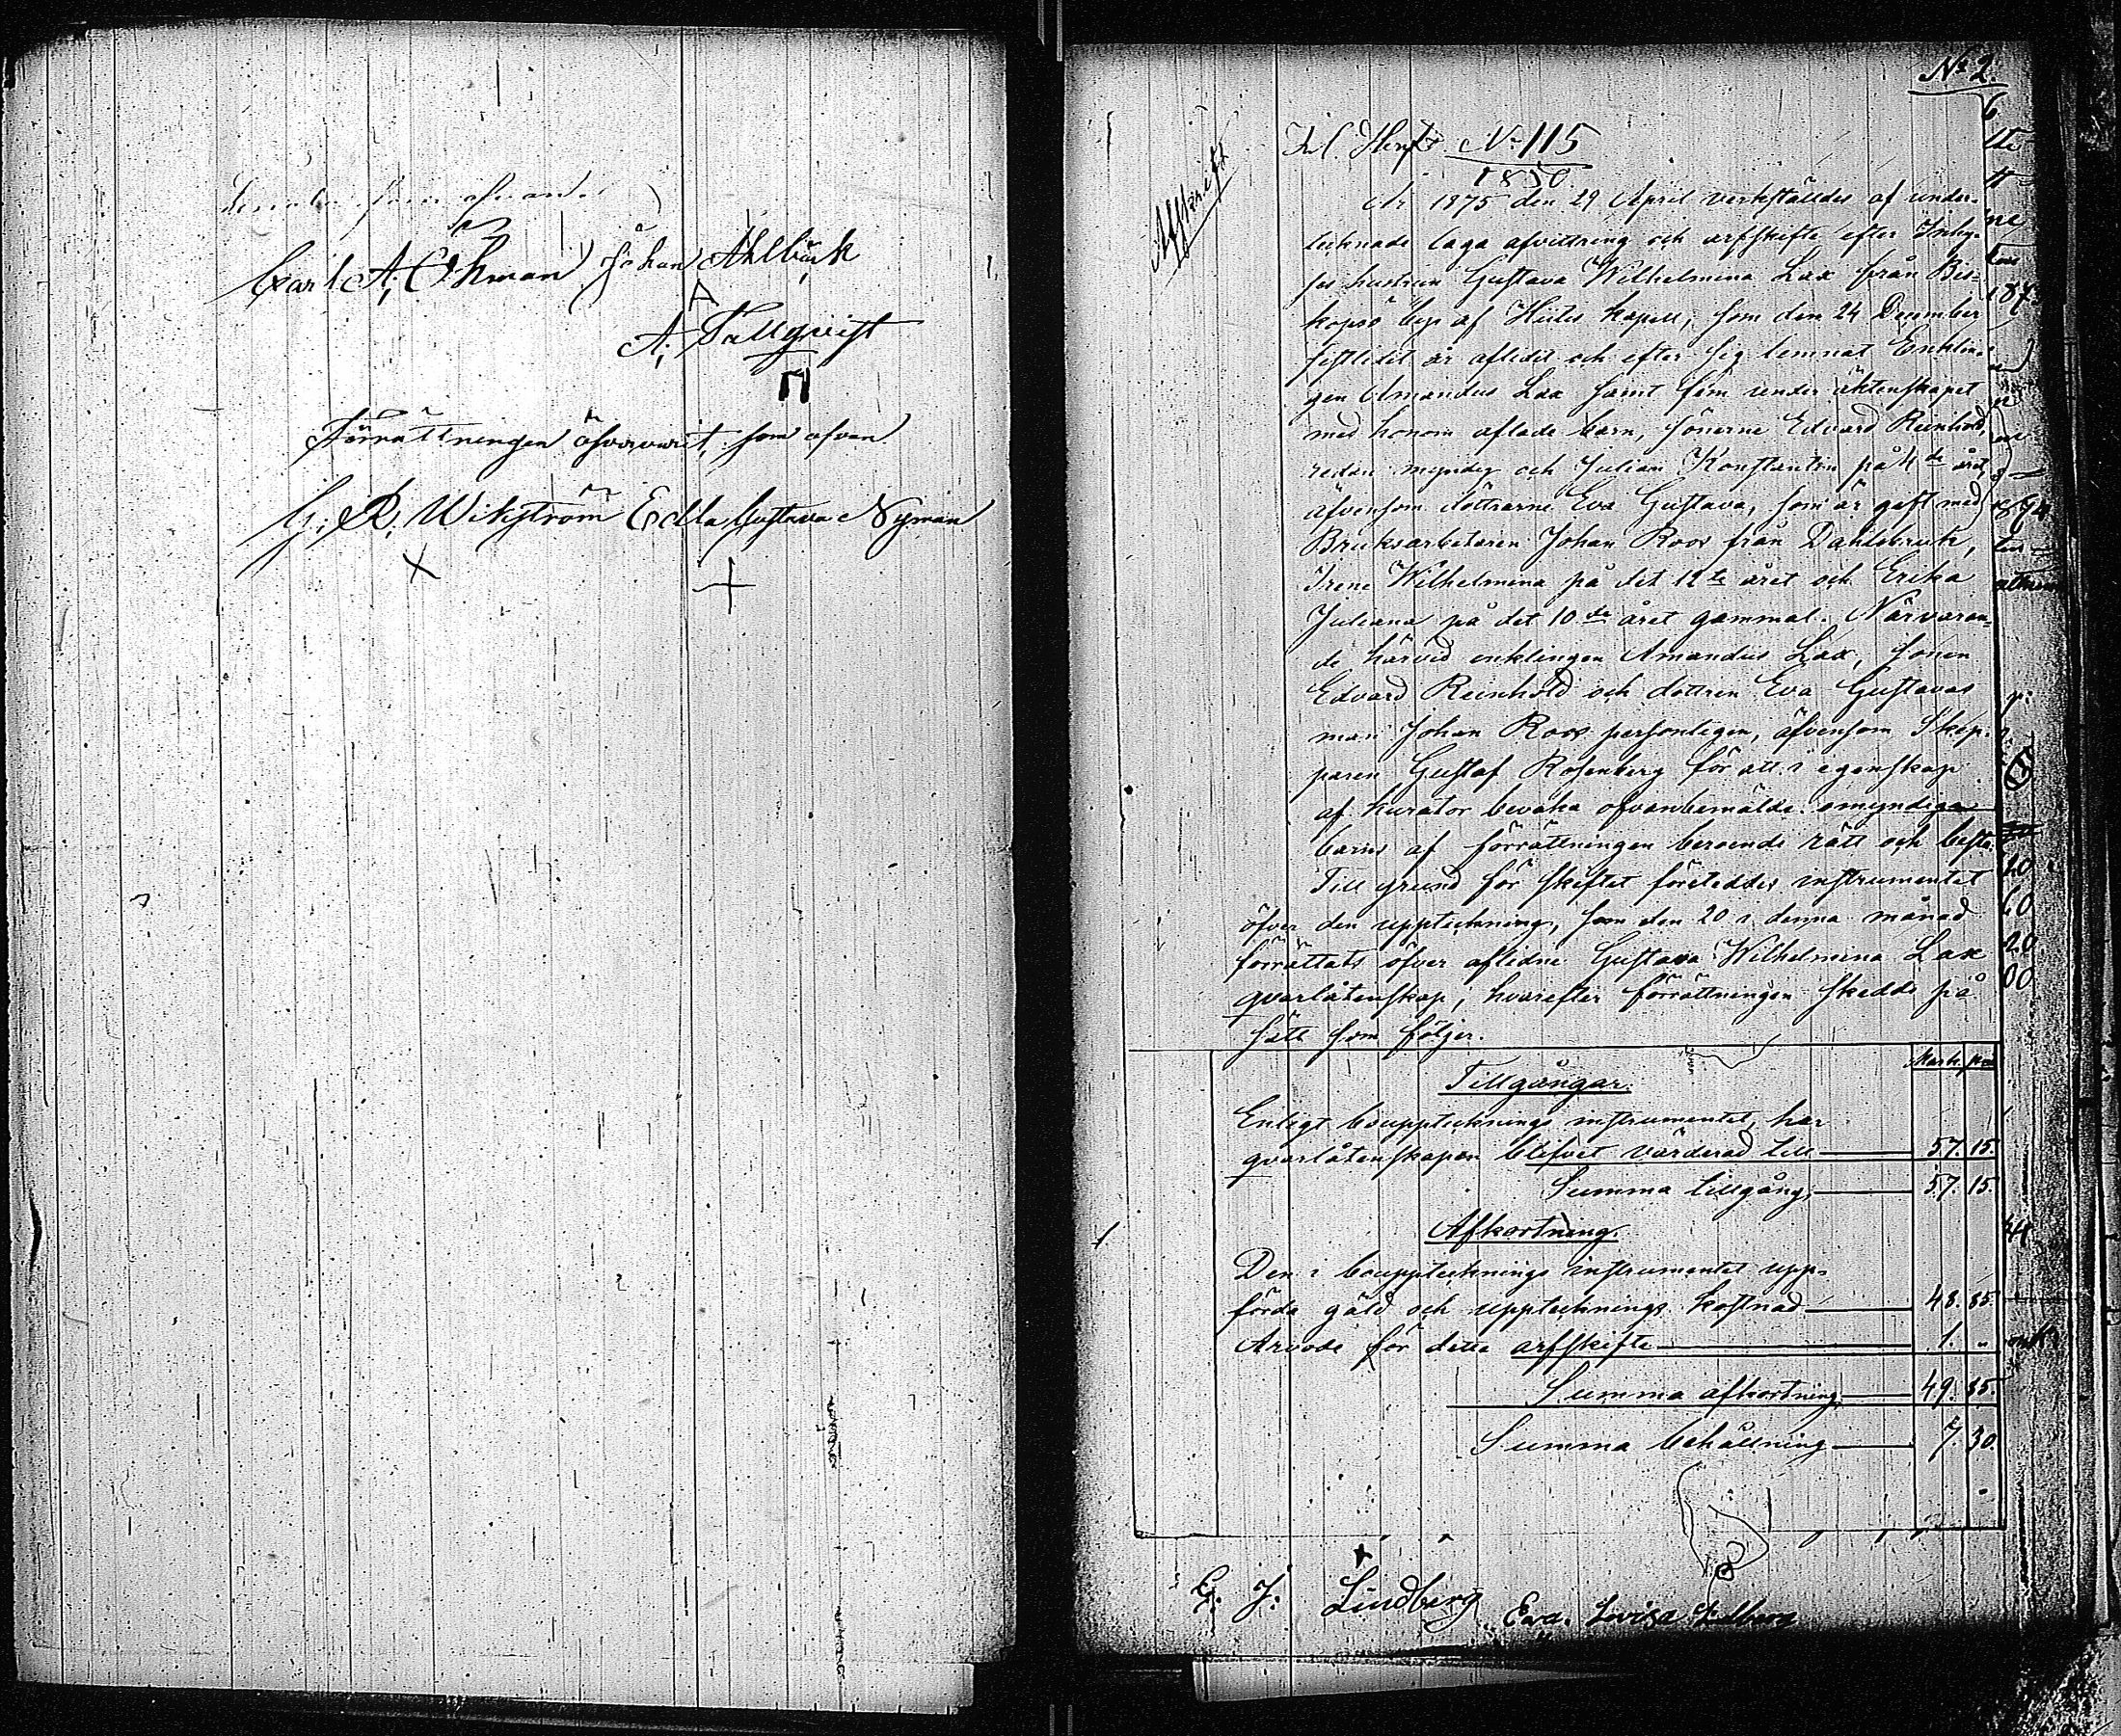 Carl A. Öhman Johan Ahlbäck
A. Tallqvist
Förrättningen öfvervarit, som ofvan
G. R. Wikström Edla Gustava Nyman
No 2.
No 115
1870
Afskrift
År 1875 den 29 April verkställdes af under-
tecknade laga afvittring och arfskifte efter Inhy-
ses hustrun Gustava Wilhelmina Lax från Bis-
kopsö by af Hitis Kapell, som den 24 December
sistlidit år aflidit och efter sig lemnat Enklin-
gen Amandus Lax samt fem under äktenskapet
med honom aflade barn, sönerne Edvard Reinhold,
redan myndig och Julian Konstantin på 4de året
äfvensom döttrarne Eva Gustava, som är gift med
Bruksarbetaren Johan Roos från Dahlsbruk,
Irene Wilhelmina på det 12te året och Erika
Juliana på det 10de året gammal. Närvaran-
de härvid enklingen Amandus Lax, sonen
Edvard Reinhold och dottren Eva Gustavas
man Johan Roos personligen, äfvensom Skep-
paren Gustaf Rosenberg för att i egenskap
af kurator bevaka ofvanbemälde omyndiga
barns af förrättningen beroende rätt och bästa.
Till grund för skiftet företeddes instrumentet
öfver den uppteckning, som den 20 i denna månad
förrättats öfver aflidne Gustava Wilhelmina Lax
qvarlåtenskap, hvarefter förrättningen skedde på
sätt som följer.
Mark pni
Tillgångar.
Enligt bouppteckningsinstrumentet har
qvarlåtenskapen blifvit värderad till 57. 15.
Summa tillgång, 57. 15.
Afkortning.
Den i boupptecknings instrumentet upp-
förda gäld och upptecknings kostnad 48. 85.
Arvode för detta arfskifte 1. "
Summa afkortning 49. 85.
Summa behållning 7. 30.
G. J. Lindberg
Eva Lovisa